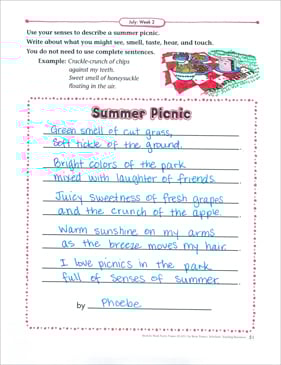 July: Week 2
Use your senses to describe a summer picnic.
Write about what you might see, smell, taste, hear, and touch.
You do not need to use complete sentences.
Example: Crackle-crunch of chips
against my teeth.
Sweet smell of honeysuckle
floating in the air.
Summer Picnic
Green smell of cut grass,
Soft tickle of the ground.
Bright colors of the park
mixed with laughter of friends.
Juicy sweetness of fresh grapes
and the crunch of the apple.
Warm sunshine on my arms
as the breeze moves my hair.
I love picnics in the park
full of senses of summer.
by Phoebe